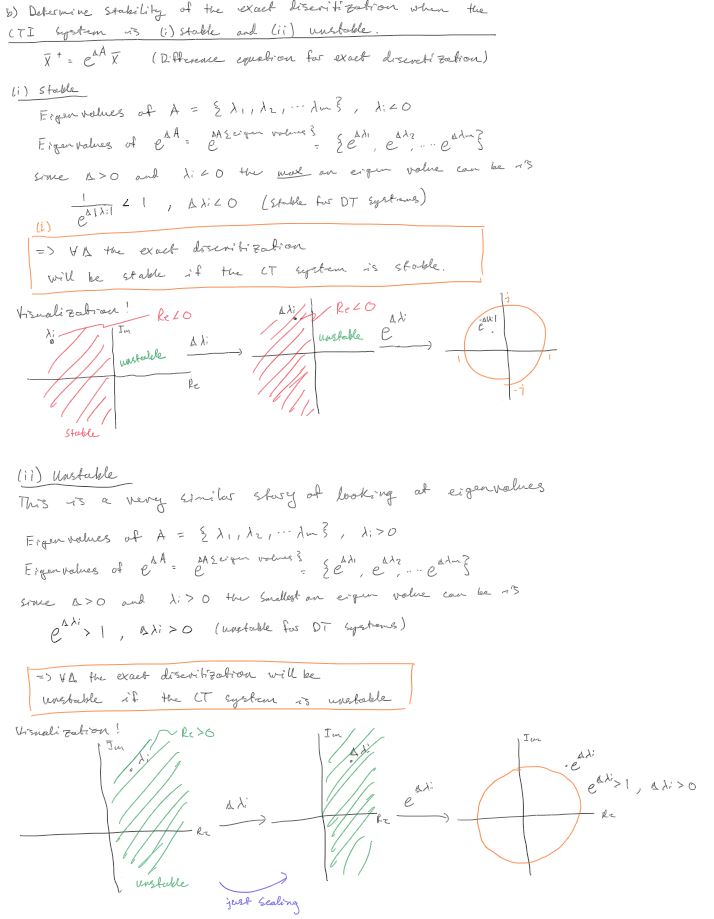 b) Determine stability of the exact discritization when the
CTI system is (i) stable and (ii) unstable.
x̄⁺ = e^{ΔA} x̄ (Difference equation for exact discretization)
(i) Stable
Eigenvalues of A = {λ₁, λ₂, ... λm}, λi<0
Eigenvalues of e^{ΔA} = e^{Δ{eigen values}} = {e^{Δλ₁}, e^{Δλ₂}, ... e^{Δλm}}
since Δ>0 and λi<0 the max an eigen value can be is
1/e^{Δ|λi|} < 1, Δλi<0 (stable for DT systems)
(i)
=> ∀Δ the exact discritization
will be stable if the CT system is stable.
Visualization!
λi Re<0 Im unstable Re stable
Δλi
Δλi Re<0 unstable
e^{Δλi}
i e^{-Δ|λi|} 1 1 -i
(ii) Unstable
This is a very similar story of looking at eigenvalues
Eigenvalues of A = {λ₁, λ₂, ... λm}, λi>0
Eigenvalues of e^{ΔA} = e^{Δ{eigen values}} = {e^{Δλ₁}, e^{Δλ₂}, ... e^{Δλm}}
since Δ>0 and λi>0 the smallest an eigen value can be is
e^{Δλi}>1, Δλi>0 (unstable for DT systems)
=> ∀Δ the exact discritization will be
unstable if the CT system is unstable
Visualization!
Im λi Re>0 Re unstable
Δλi
just scaling
Im Δλi Re
e^{Δλi}
Im e^{Δλi} Re
e^{Δλi}>1, Δλi>0